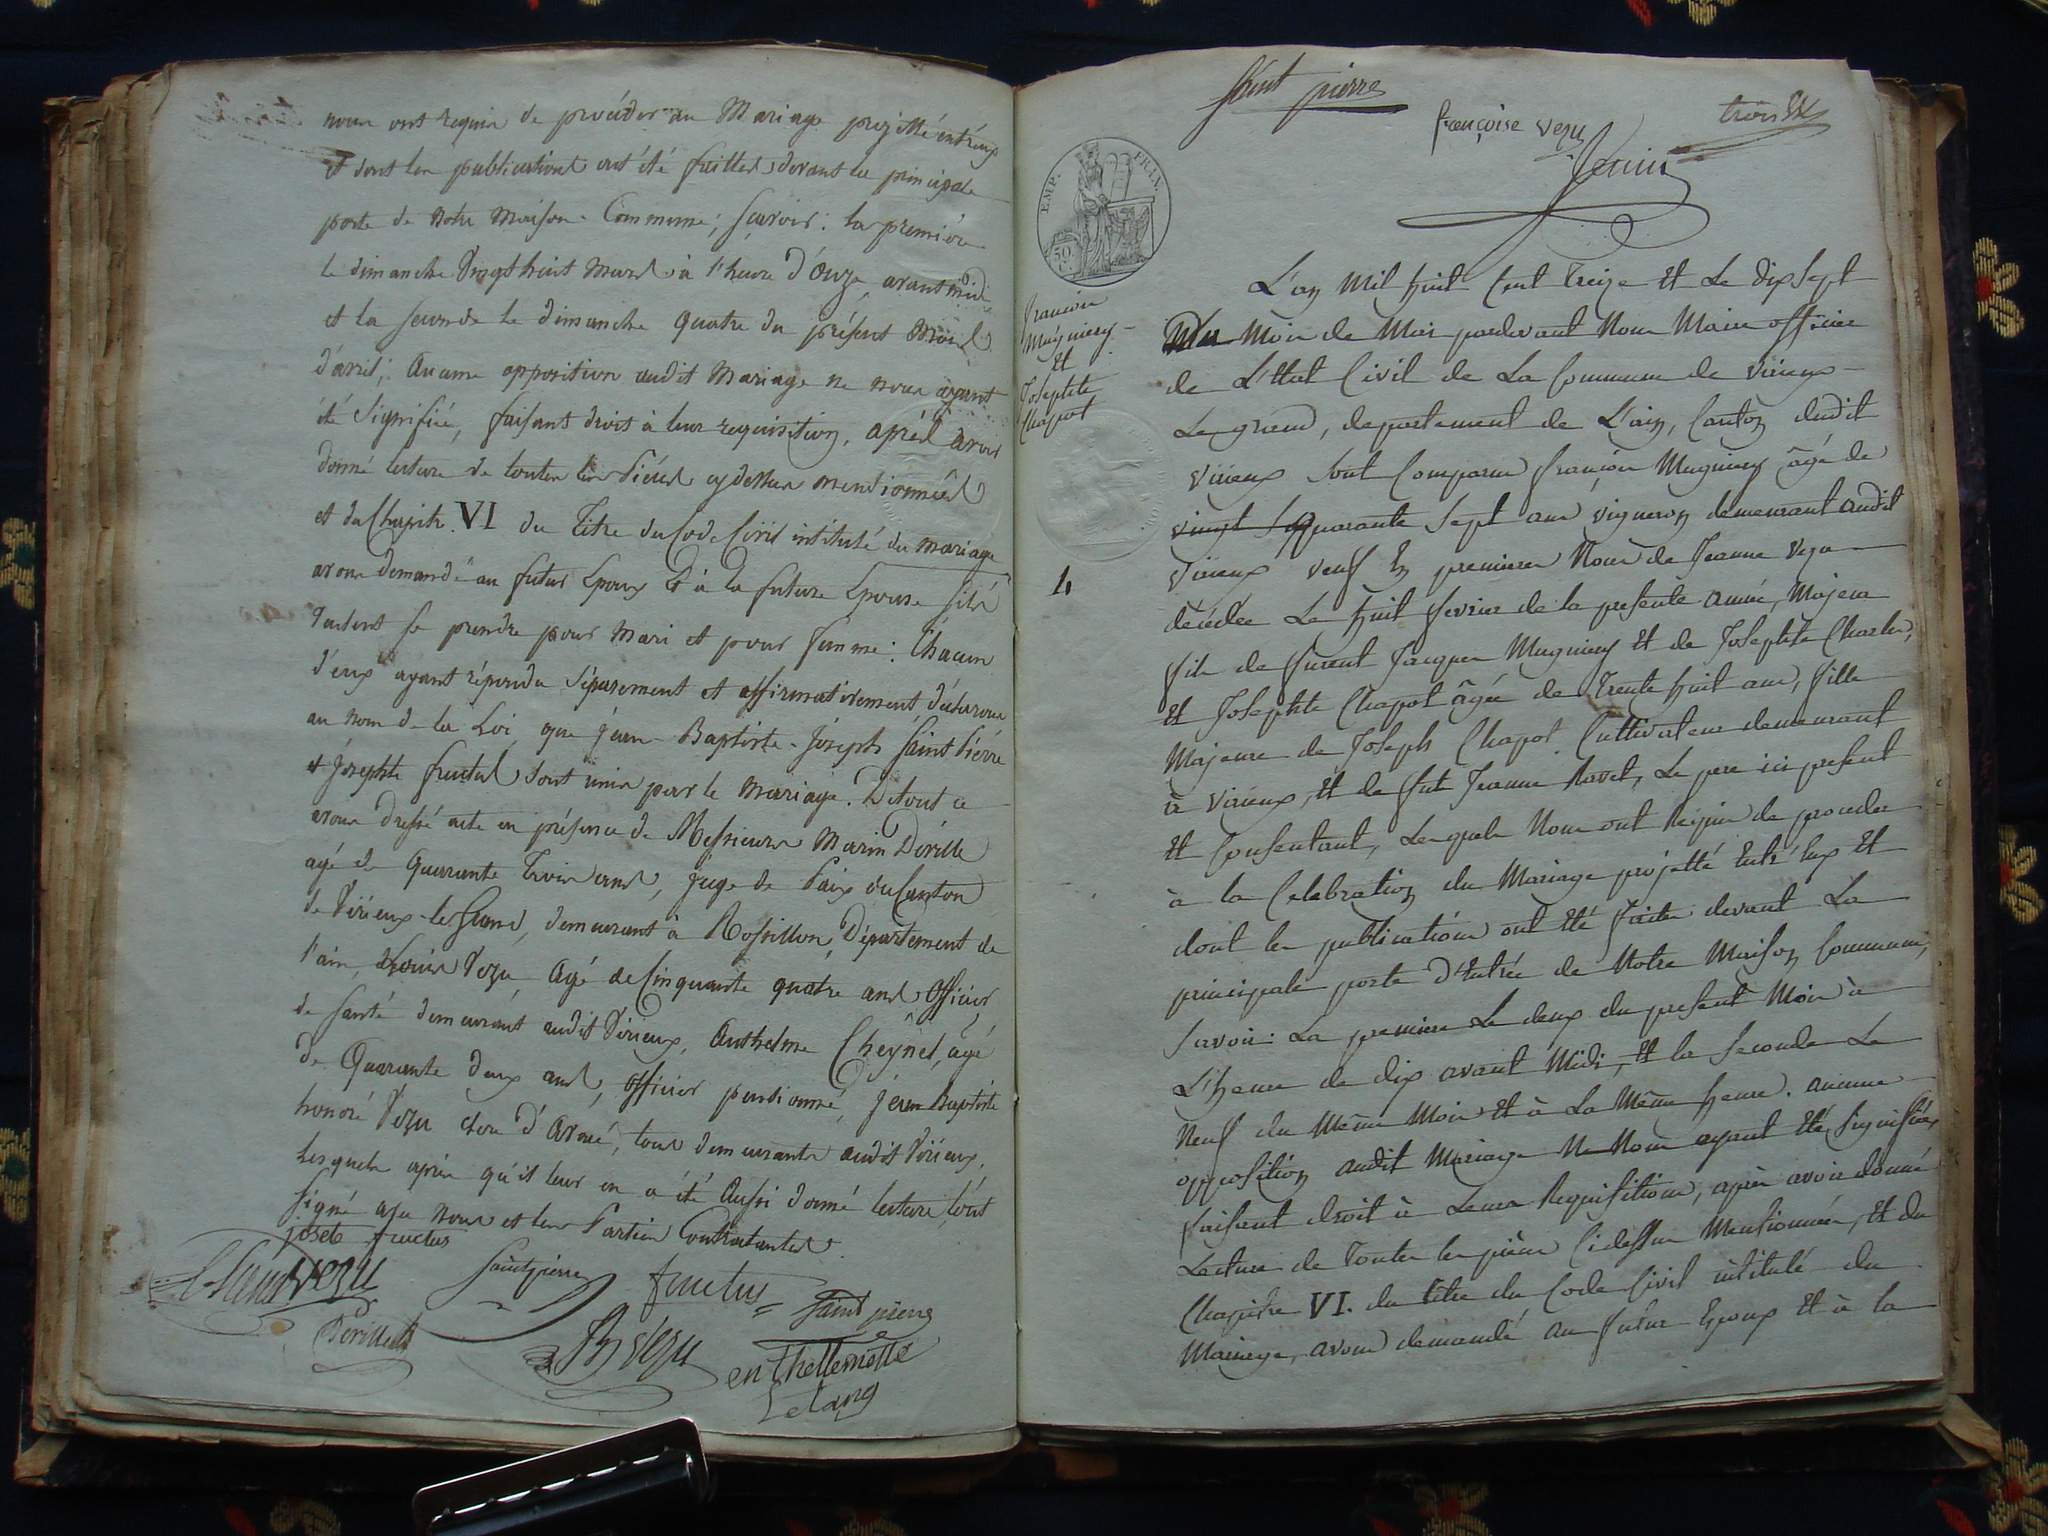 nous ont requis de procéder au Mariage projetté entr'eux
et dont les publications ont été faittes devant la principale
porte de Notre Maison Commune; sçavoir: la premiére
le dimanche Vingt huit Mars à l'heure d'Onze avant midi
et la seconde le dimanche quatre du présent mois
d'avril; Aucune opposition audit Mariage ne nous ayant
été Signifiée, faisant droit à leur requisition, aprés avoir
donné lecture de toutes les Piéces cy dessus mentionnées
et du Chapitre VI du Titre du Code Civil intitulé du mariage
avons demandé au futur Epoux & à la future Epouse s'ils
veulent se prendre pour Mari et pour femme: Chacun
d'eux ayant répondu séparement et affirmativement déclarons
au nom de la Loi que jean-Baptiste-Joseph Saint Piérre
et Josephte fructus sont unis par le mariage. De tout ce
avons dressé acte en présence de Messieurs Marin Dérille
agé de Quarante Trois ans, juge de Paix du Canton
de Virieux-le-Grand, demeurant à Rossillon, Département de
l'ain, Louis Vezu, Agé de Cinquante quatre ans Officier
de Santé demeurant audit Virieux, Anthelme Cheynel, agé
de Quarante deux ans, Officier pensionné, jean Baptiste
honoré Vezu d'Avoué, tous demeurants audit Virieux.
Lesquels aprés qu'il leur en a été Aussi donné lecture, l'ont
Signé avec nous et les Parties Contractantes.
josete fructus
Vezu
Saintpierre
fructus
Saint pierre
Vezu
en thellemotte
Letang
Saint pierre
françoise vezu
trois
EMP. FRAN.
50 C.
François
Mugniery
Et
Josephte
Chapot
4
L'an Mil huit Cent Treize Et Le dix Sept
Du Mois de Mai pardevant Nous Maire officier
de L'Etat Civil de La Commune de Virieux
Le grand, departement de L'ain, Canton dudit
Virieux Sont Comparus François Mugniery âgé de
vingt Quarante Sept ans vigneron demeurant audit
Virieux veuf En premieres Noces de Jeanne Vezu
décédée Le huit fevrier de la presente année, Majeur
fils de furent Jacques Mugniery Et de Josephte Charles,
Et Josephte Chapot âgée de Trente huit ans, fille
Majeure de Joseph Chapot Cultivateur demeurant
à Virieux, Et de fut Jeanne Ravet, Le pere ici present
Et Consentant, Lesquels Nous ont Requis de proceder
à la Celebration du Mariage projetté Entr'Eux Et
dont les publications ont Eté faites devant La
principale porte d'Entrée de Notre Maison Commune,
Savoir: La premiere Le deux du present Mois à
L'heure de dix avant Midi, Et la Seconde Le
Neuf du Même Mois Et à La Même heure. aucune
opposition audit Mariage Ne Nous ayant Eté Signifiée,
faisant droit à Leurs Requisitions, après avoir donné
Lecture de Toutes les pièces Cidessus Mentionnées, Et du
Chapitre VI. du titre du Code Civil intitulé du
Mariage, avons demandé au futur Epoux Et à la